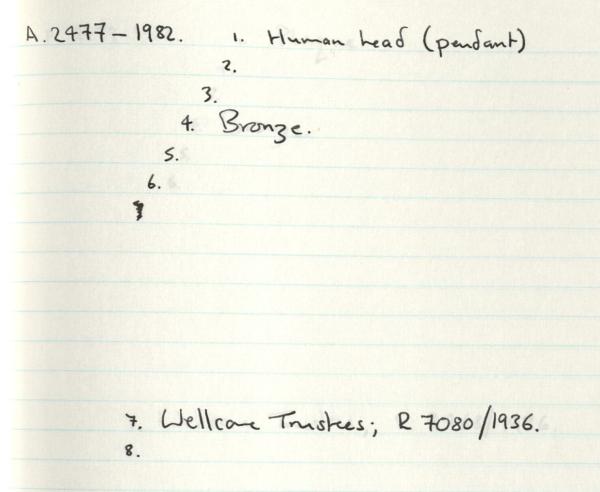 A.2477-1982. 1. Human head (pendant)
2.
3.
4. Bronze.
5.
6.
7. Wellcome Trustees; R 7080/1936.
8.